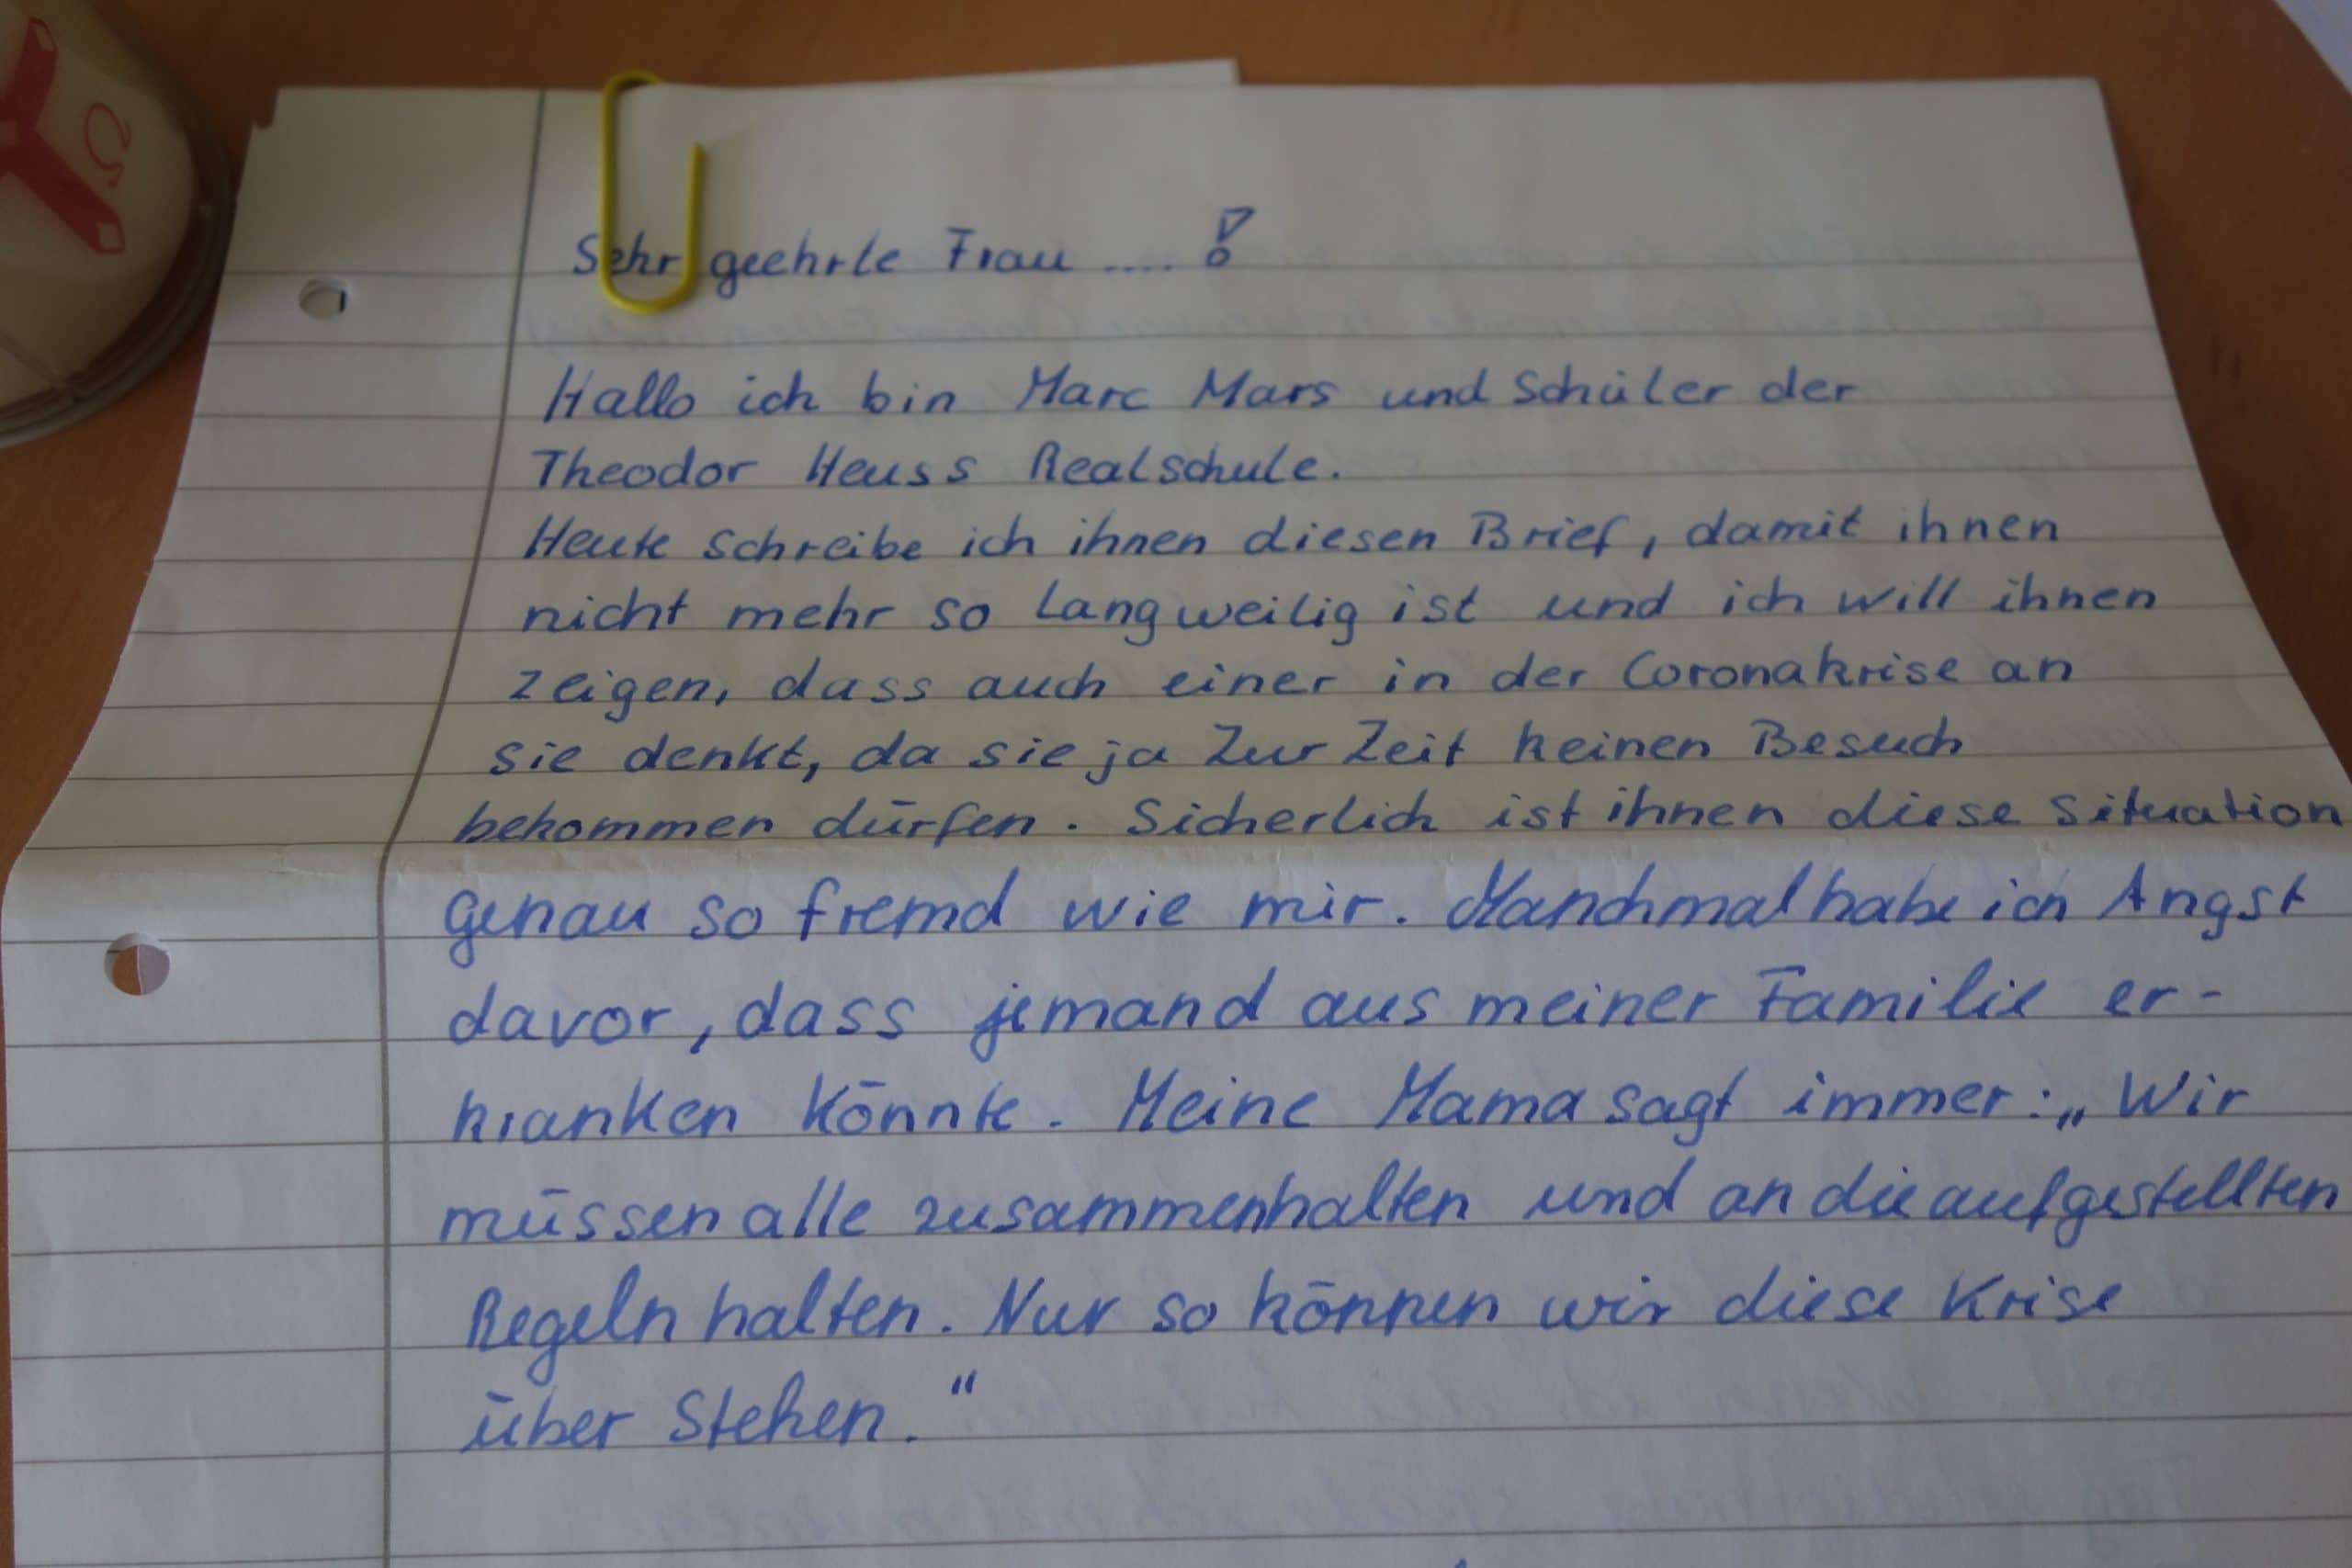 Sehr geehrte Frau .... !
Hallo ich bin Marc Mars und Schüler der
Theodor Heuss Realschule.
Heute schreibe ich ihnen diesen Brief, damit ihnen
nicht mehr so langweilig ist und ich will ihnen
zeigen, dass auch einer in der Coronakrise an
sie denkt, da sie ja zur Zeit keinen Besuch
bekommen dürfen. Sicherlich ist ihnen diese Situation
genau so fremd wie mir. Manchmal habe ich Angst
davor, dass jemand aus meiner Familie er-
kranken könnte. Meine Mama sagt immer: „Wir
müssen alle zusammenhalten und an die aufgestellten
Regeln halten. Nur so können wir diese Krise
über stehen."